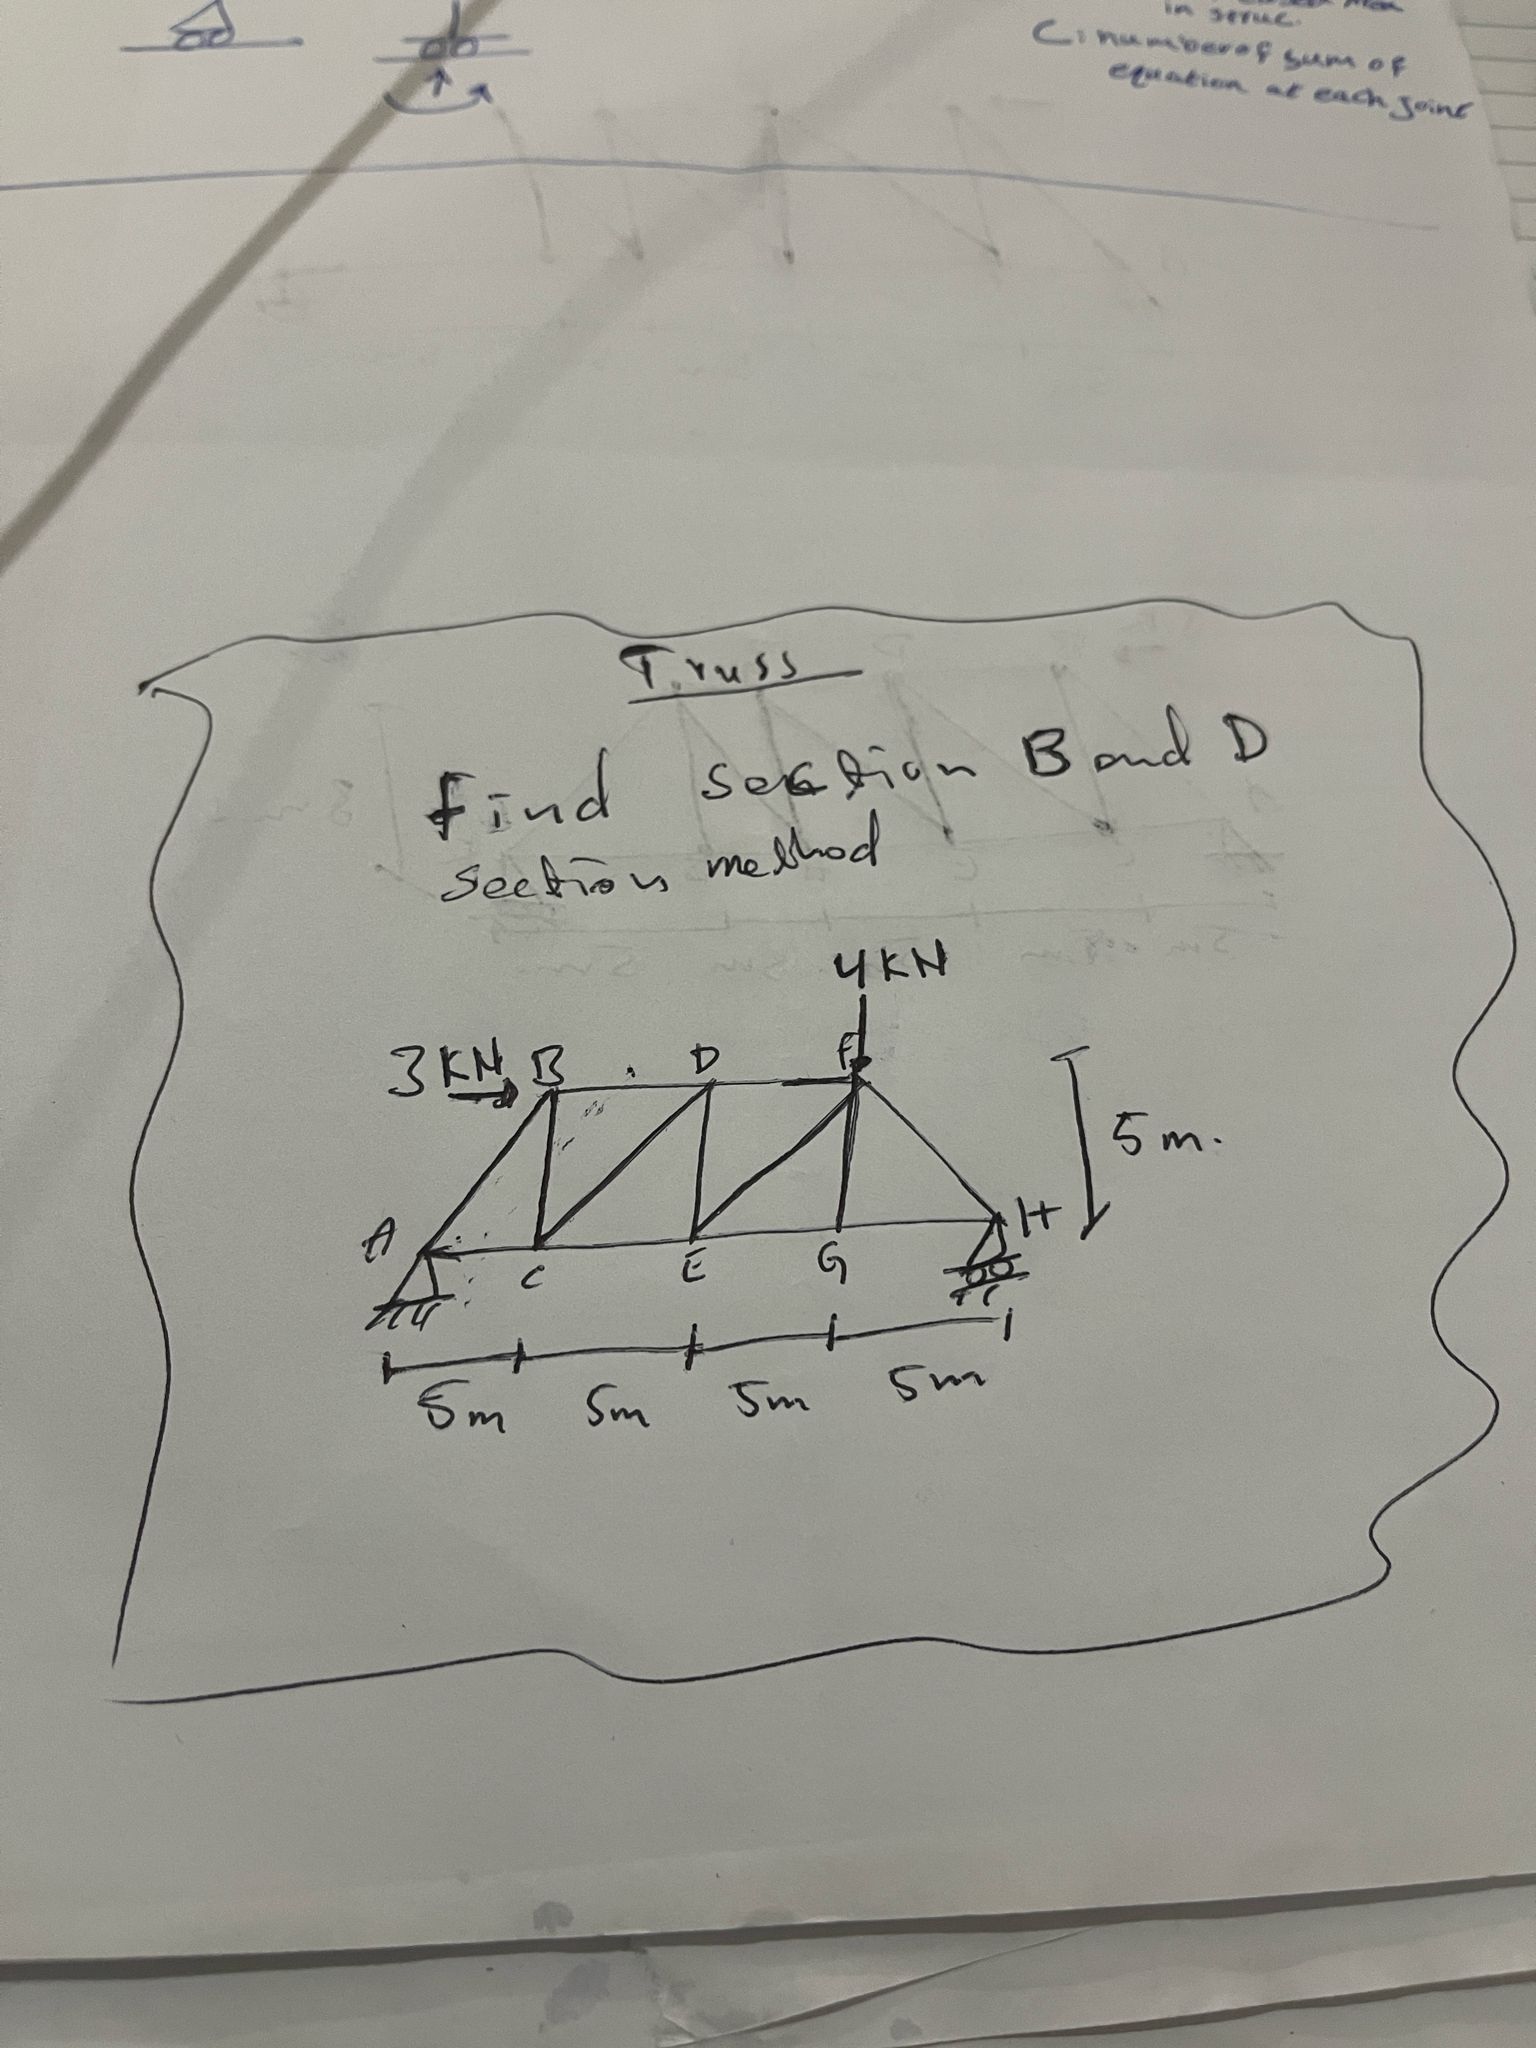 in struc.
C: number of sum of
equation at each joint
Truss
Find section B and D
section method
4 KN
3 KN B D F
5 m.
A C E G H
5m 5m 5m 5m